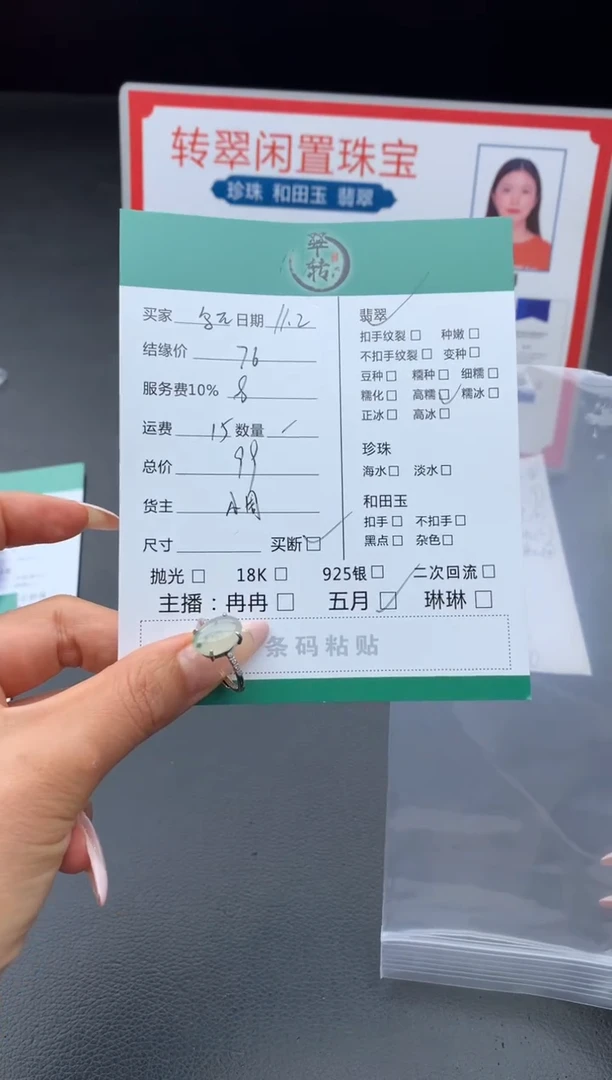 转翠闲置珠宝
珍珠 和田玉 翡翠
翠
转
买家 日期 11.2
结缘价 76
服务费10% 8
运费 15 数量
总价 99
货主
尺寸 买断□
翡翠
扣手纹裂□ 种嫩□
不扣手纹裂□ 变种□
豆种□ 糯种□ 细糯□
糯化□ 高糯□ 糯冰□
正冰□ 高冰□
珍珠
海水□ 淡水□
和田玉
扣手□ 不扣手□
黑点□ 杂色□
抛光□ 18K□ 925银□ 二次回流□
主播：冉冉□ 五月□ 琳琳□
条码粘贴